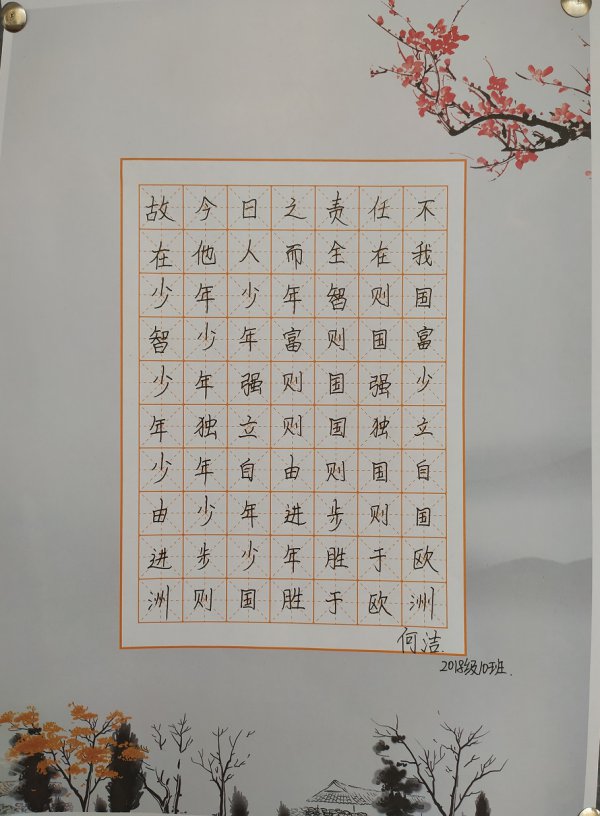 故今日之责任不
在他人而全在我
少年少年智则国
智少年富则国富
少年强则国强少
年独立则国独立
少年自由则国自
由少年进步则国
进步少年胜于欧
洲则国胜于欧洲
何洁
2018级10班.